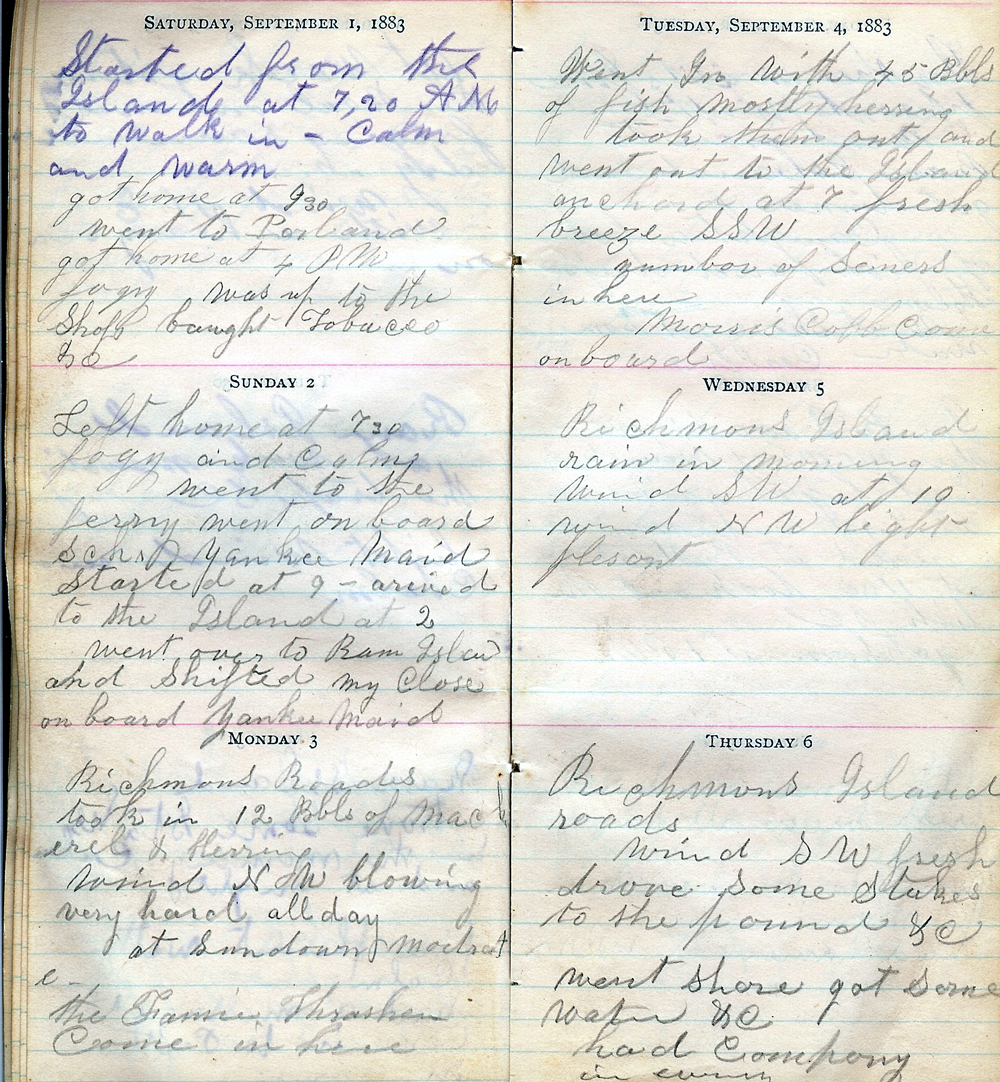 SATURDAY, SEPTEMBER 1, 1883
Started from the
Island at 7,20 AM
to walk in - Calm
and warm
got home at 930
went to Porland
got home at 4 PM
fogy was up to the
Shop baught Tobacco
&c
SUNDAY 2
Left home at 730
fogy and Calm
went to the
ferry went on board
Schr Yankee Maid
Started at 9 - arived
to the Island at 2
went over to Ram Islan
and Shifted my Close
on board Yankee Maid
MONDAY 3
Richmons Roades
took in 12 Bbls of Mack
erel & Herring
wind NW blowing
very hard all day
at Sundown Modrat
e -
the Fannie Thrasher
Come in here
TUESDAY, SEPTEMBER 4, 1883
Went In with 45 Bbls
of fish mostly herring
took them out and
went out to the Island
anchord at 7 fresh
breeze SSW
number of Seners
in here
Morris Cobb Come
on board
WEDNESDAY 5
Richmons Island
rain in morning
wind SW at 10
wind NW light
plesont
THURSDAY 6
Richmons Island
roads
wind SW fresh
drove Some Stakes
to the pound &C
went Shore got Some
water &C
had Company
in